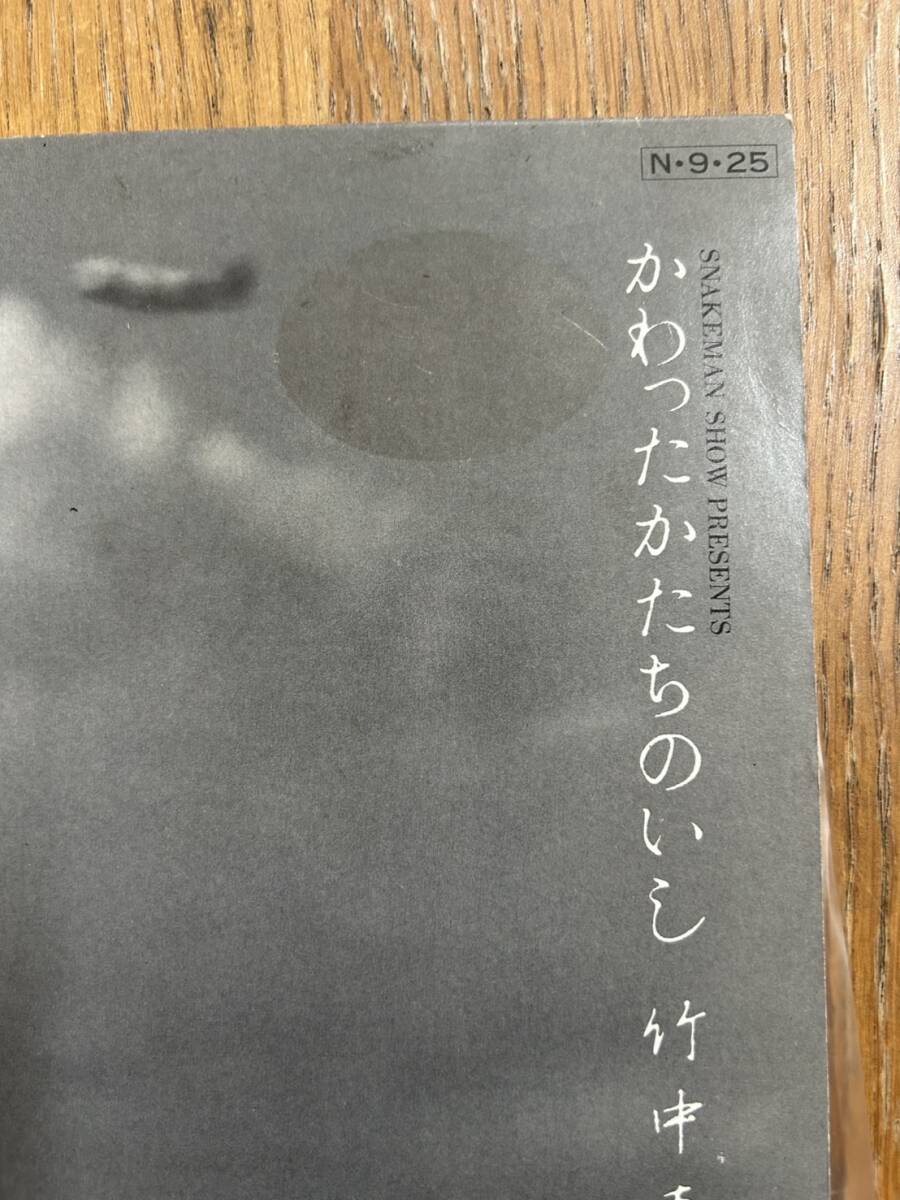 N・9・25
SNAKEMAN SHOW PRESENTS
かわったかたちのいし 竹中